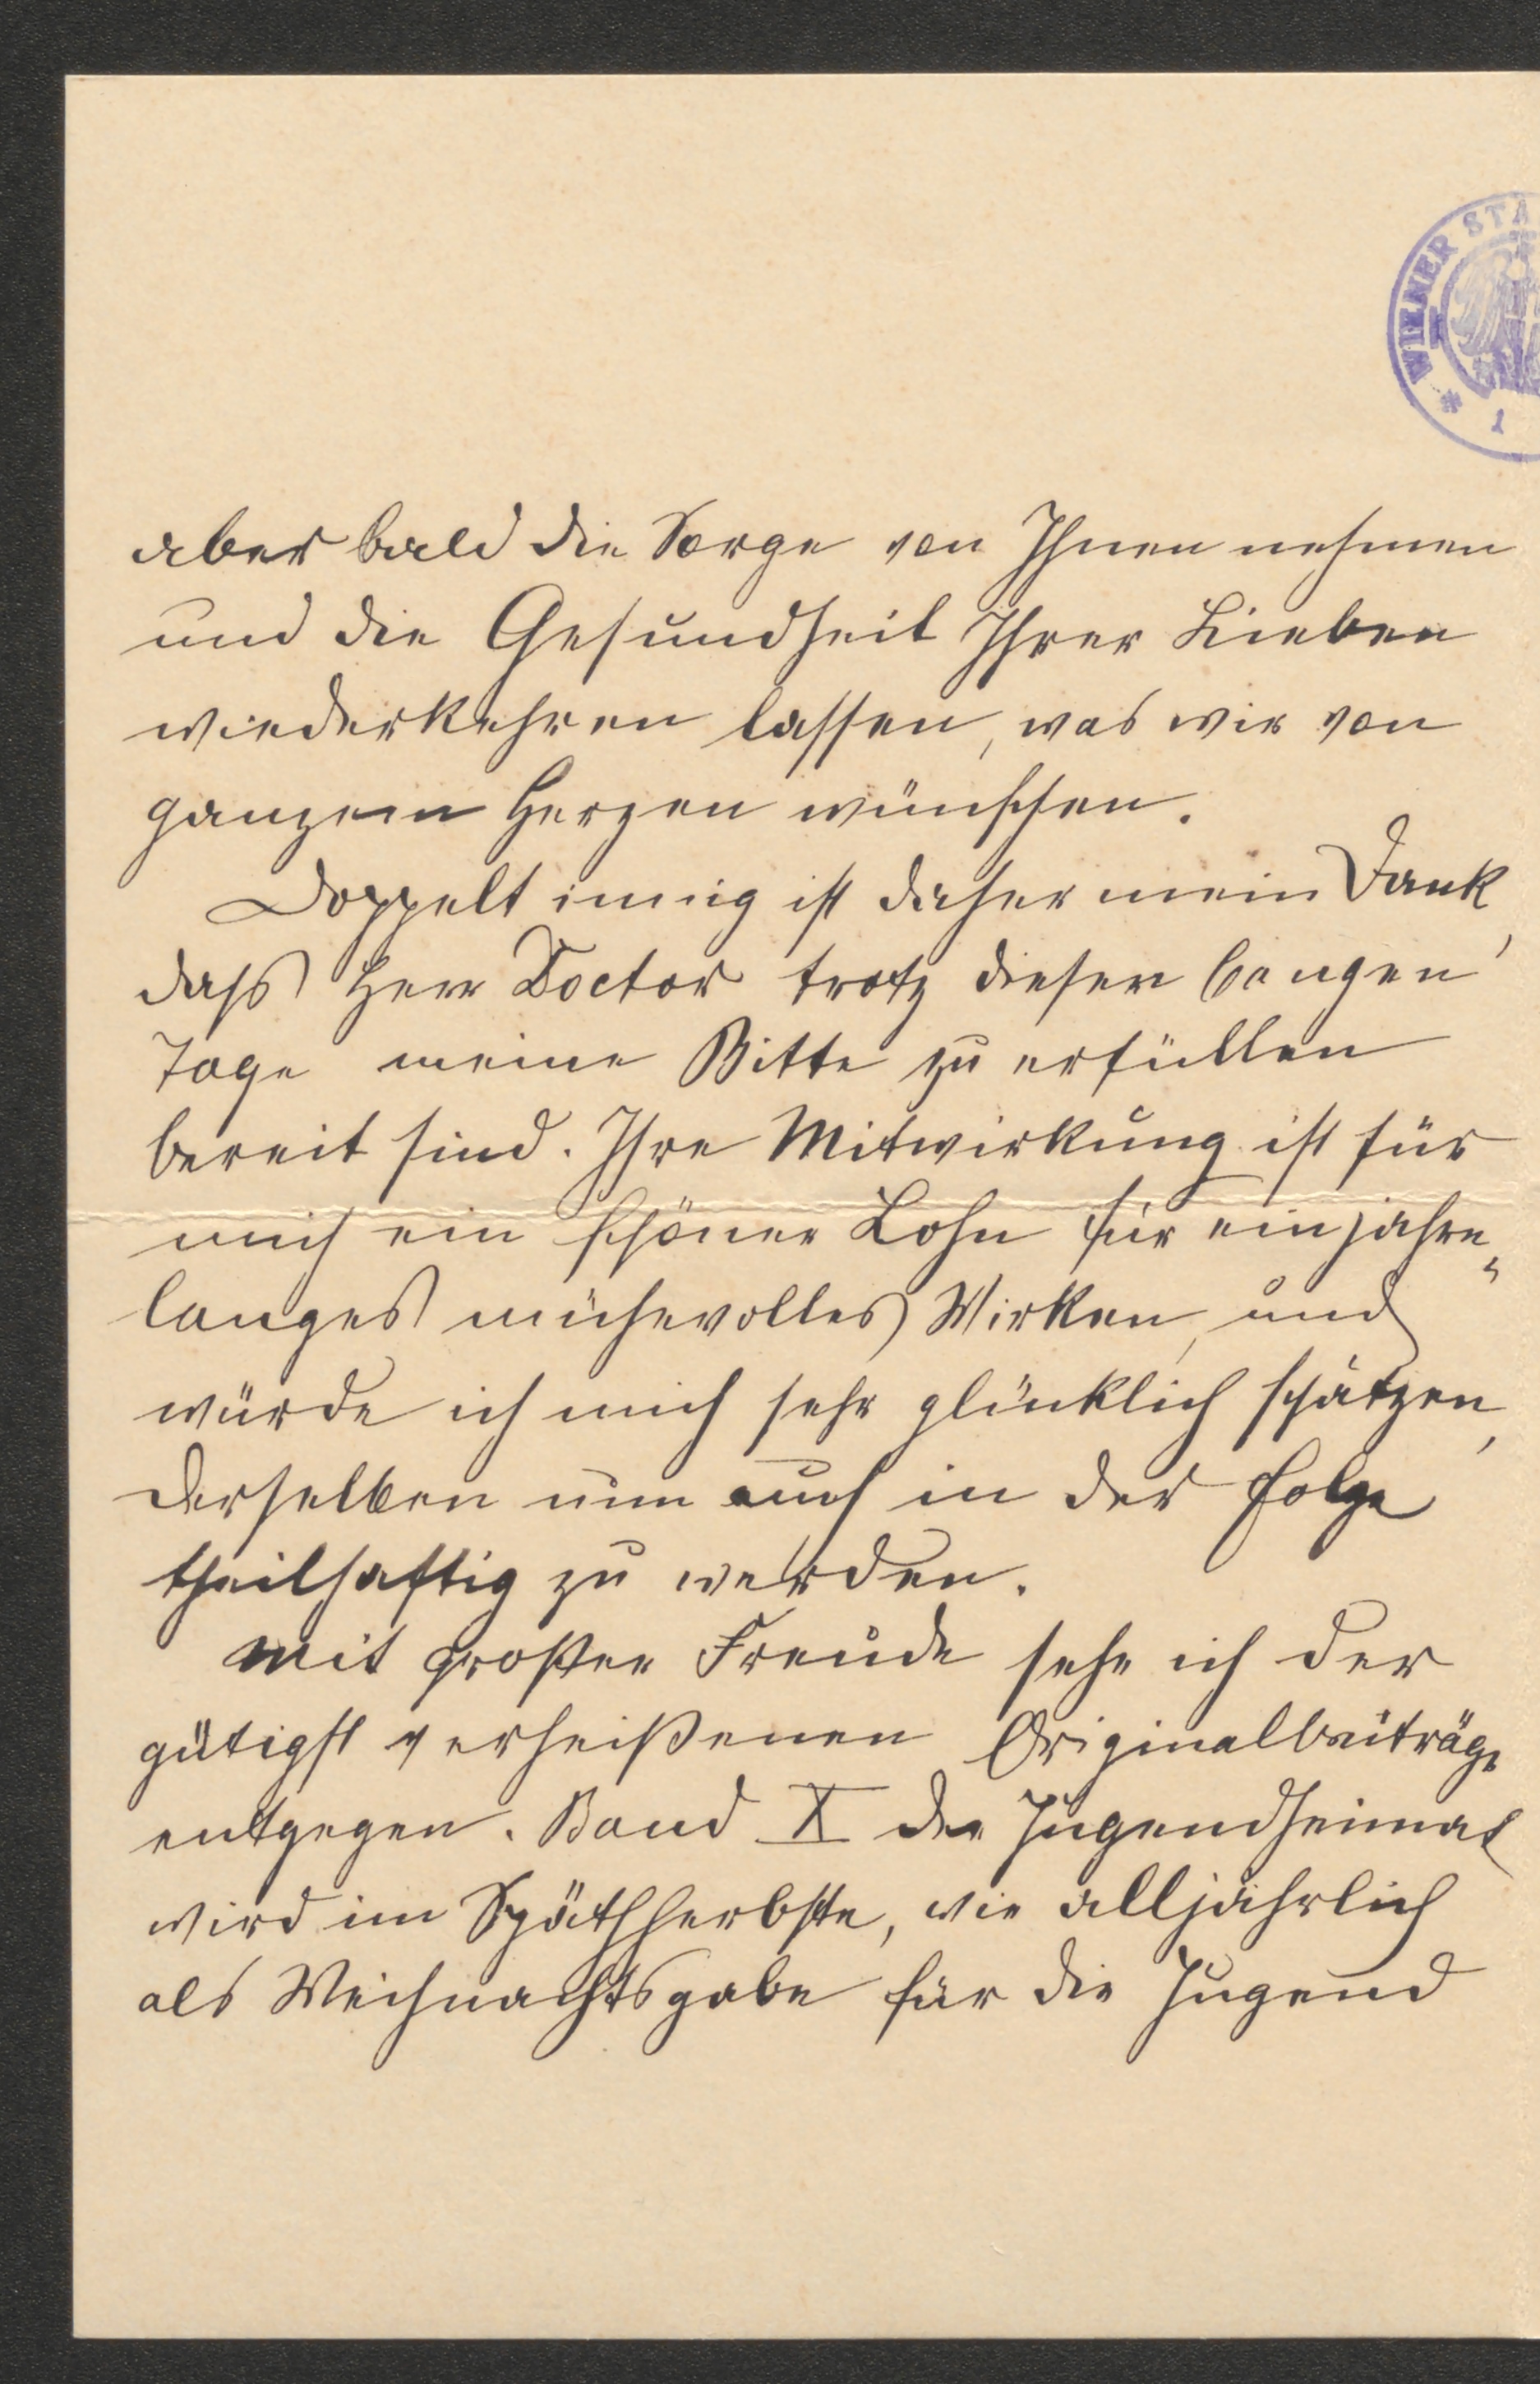 WIENER STA
1
aber bald die Sorge von Ihnen nehmen
und die Gesundheit Ihrer Lieben
wiederkehren lassen, was wir von
ganzem Herzen wünschen.
Doppelt innig ist daher mein Dank,
dass Herr Doctor trotz dieser bangen
Tage meine Bitte zu erfüllen
bereit sind. Ihre Mitwirkung ist für
mich ein schöner Lohn für ein jahre„
langes mühevolles Wirken, und
würde ich mich sehr glücklich schätzen,
derselben nun auch in der Folge
theilhaftig zu werden.
Mit großer Freude sehe ich der
gütigst verheißenen Originalbeiträge
entgegen. Band X der Jugendheimat
wird im Spätherbste, wie alljährlich
als Weihnachtsgabe für die Jugend